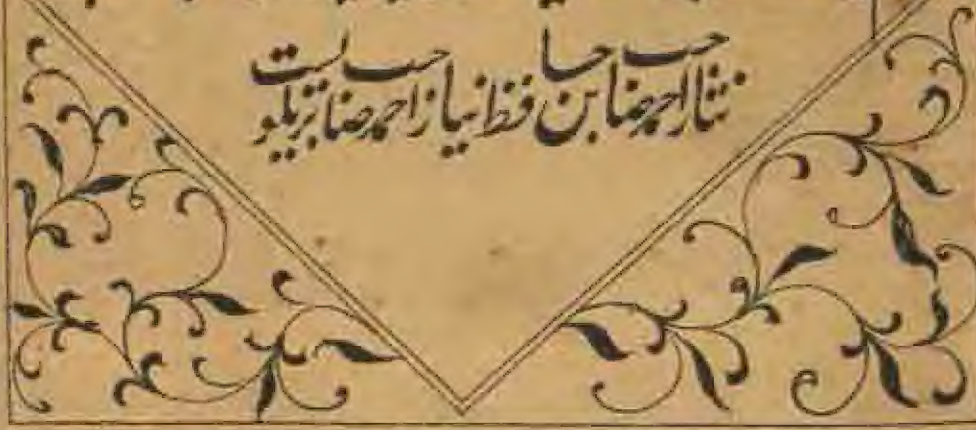 نثار احمد صاحب ابن حافظ نیاز احمد صاحب بریلوی است